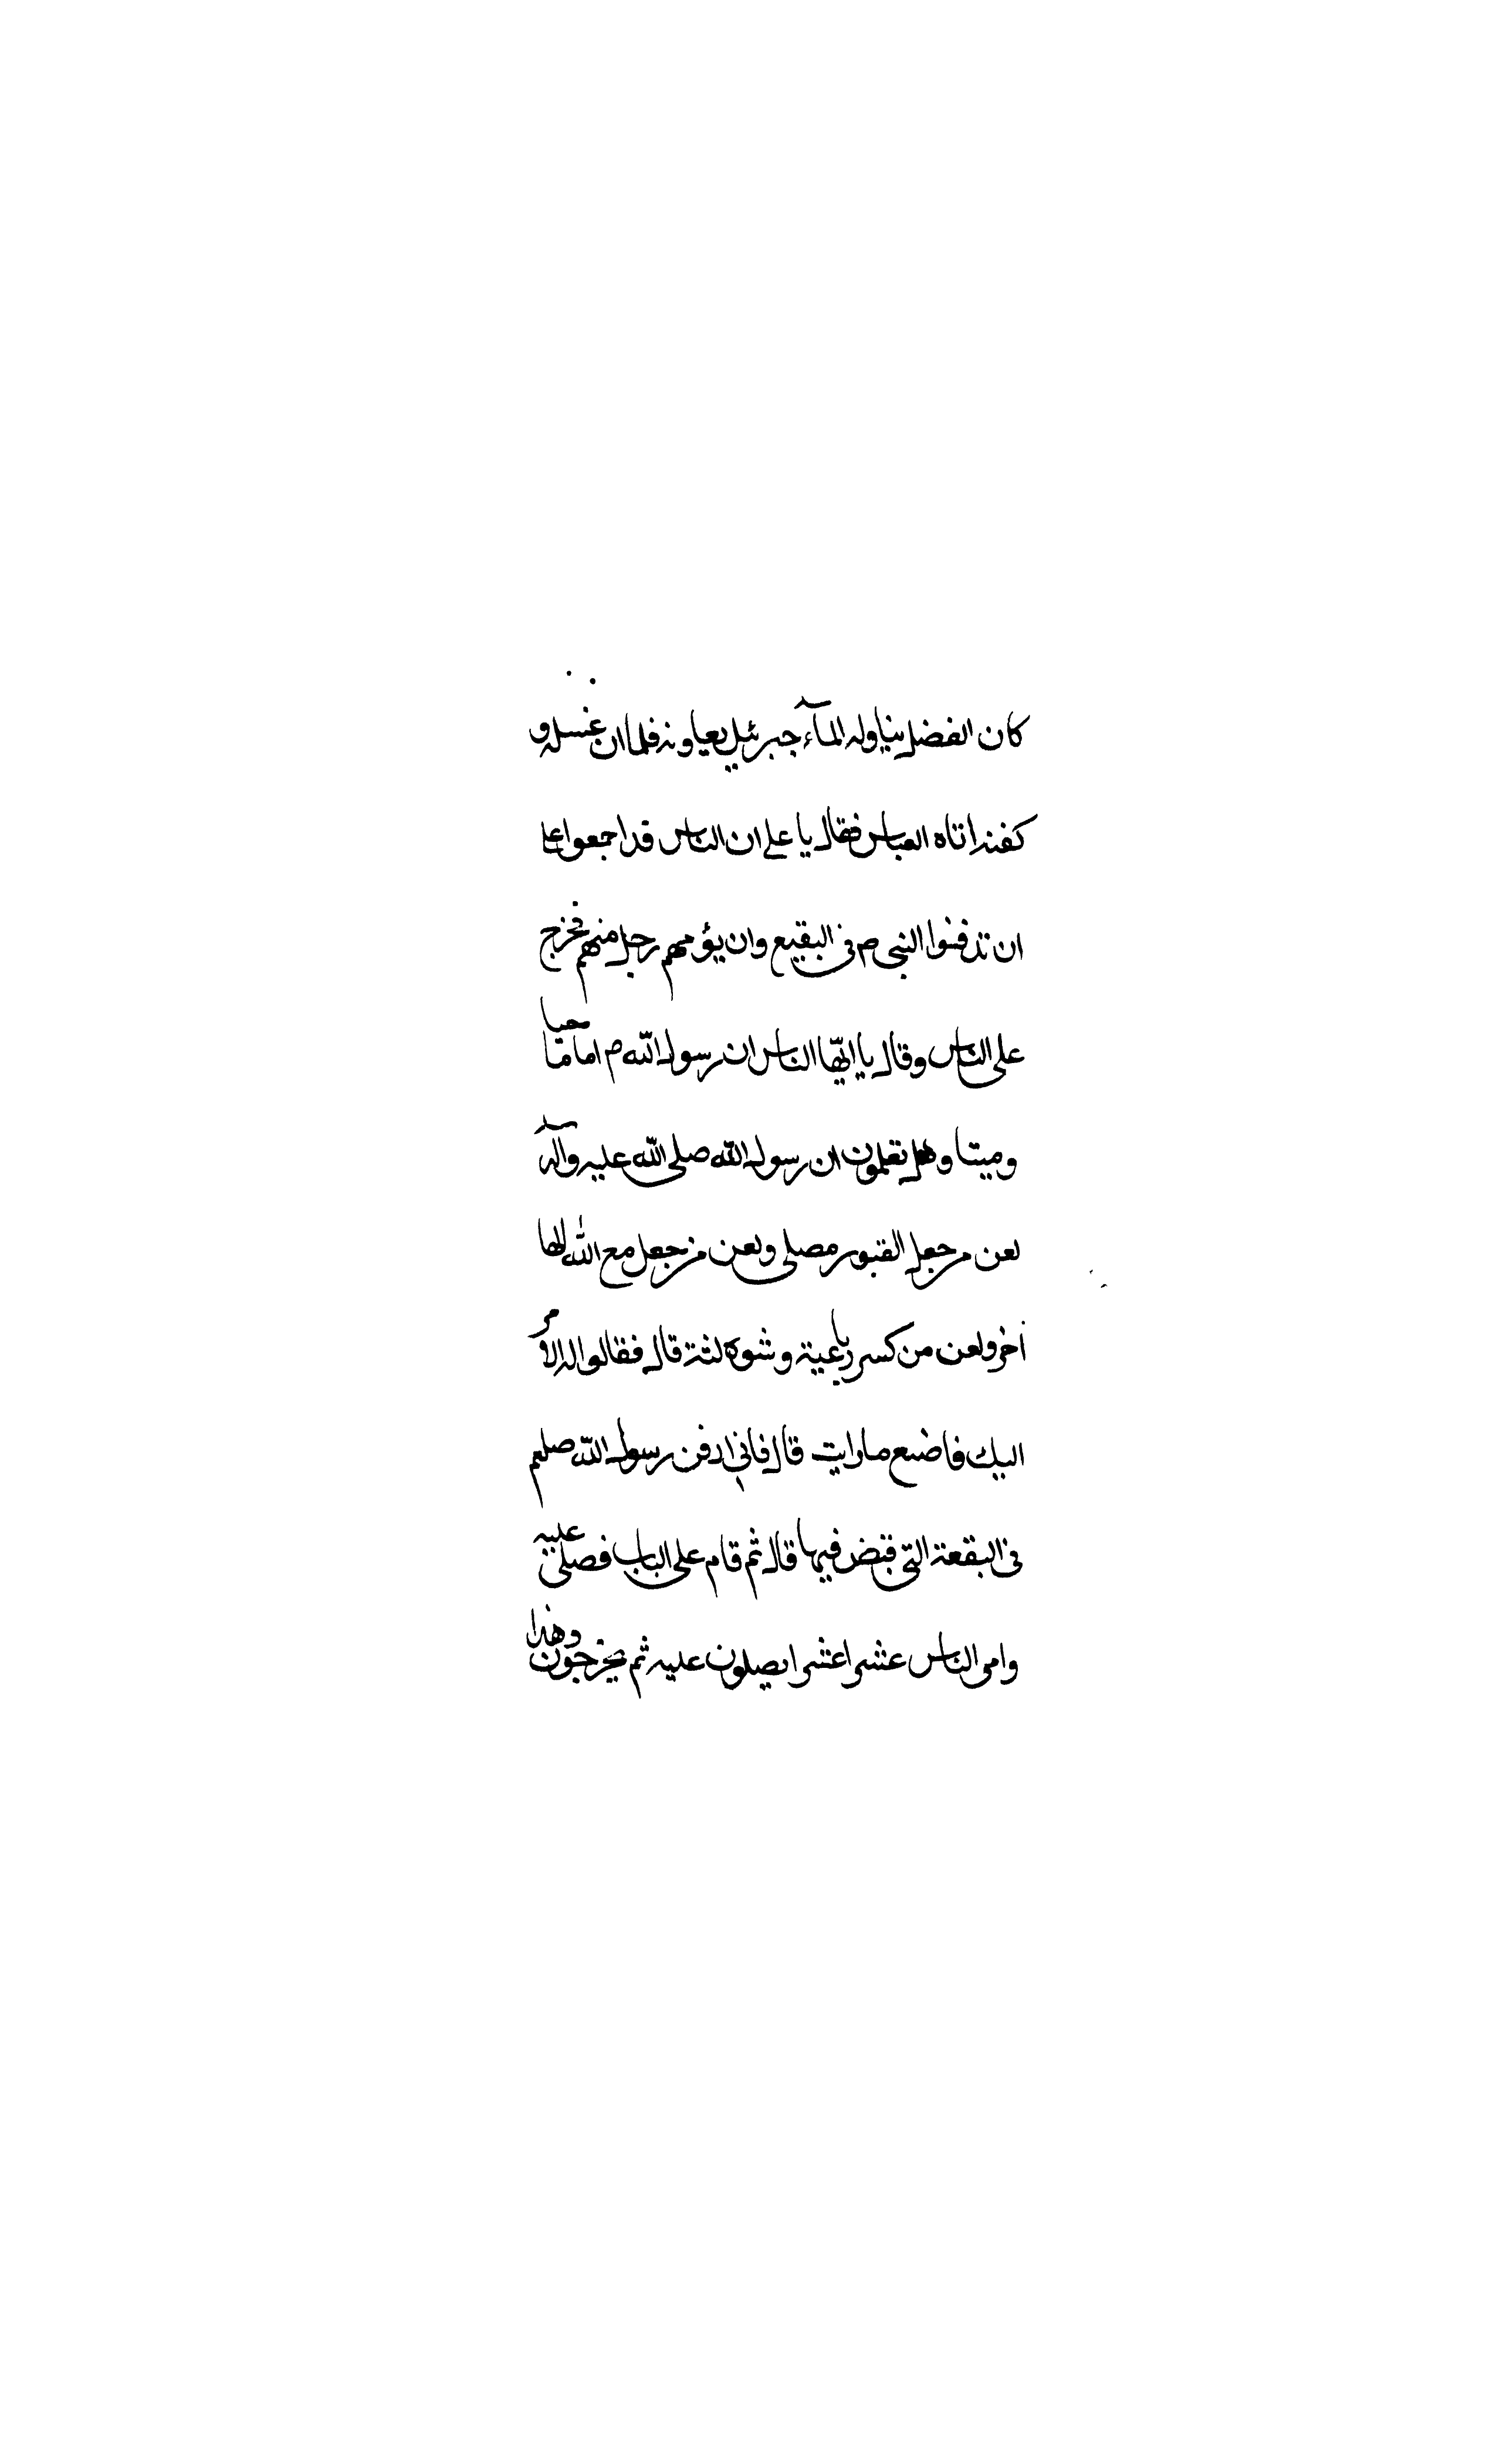 كان الفضل يناوله المآء جبرئيل يعاونه فلما ان غسله و
كفنه اتاه العباس فقال يا على ان الناس قد اجمعوا على
ان تدفنوا النبى ص فى البقيع وان يؤمهم رجل منهم فخرج
على الناس وقال يا ايّها الناس ان رسول الله ص اماما حيا
وميتا وهل تعلمون ان رسول الله صلى الله عليه وآله
لعن من جعل القبور مصلى ولعن من جعل مع الله الها
اخر ولعن من كسر رباعيته وشوه لثته قال فقالوا الامر
اليك فاضع ما رايت قال فانى ادفن رسول الله صلعم
فى البقعة التى قبض فيها قال ثم قام على الباب فصلى عليه
وامر الناس عشرا عشرا يصلون عليه ثم يخرجون وهذا